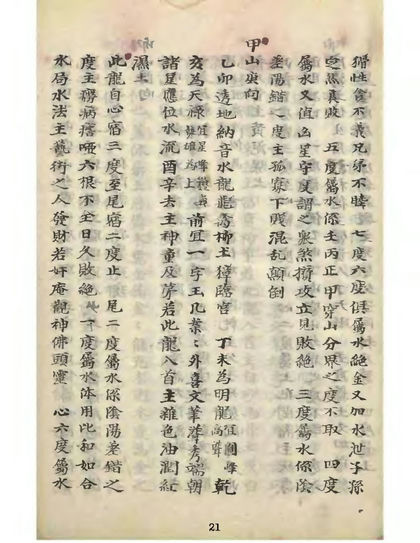 猾性貪不義兄弟不睦 七度六度俱屬水絕金又加水泄子孫
五度屬水係壬丙正甲穿山分界之度不取 四度
屬水又值凶星守度謂之衆煞攢攻立見敗絕 三度屬水係陰
差陽錯 二度主孤寡下賤混亂顛倒
甲山庚向
乙卯透地納音水龍龍為柳土獐臨官 丁未為明龍宜圓峰高聳 乾
亥為天祿宜星峰獲雄雄為上 前宜一字玉几業外喜文筆崒秀端朝
諸星應位水流酉辛去主神童及第若此龍入首主雜色油潤紅
濕土
此龍自心宿三度至尾宿二度止 尾二度屬水係陰陽差錯之
度主癆病瘖啞六根不全日久敗絕 一度屬水体用比和如合
水局水法主藝術之人發財若奸庵觀神佛頭靈 心六度屬水
21